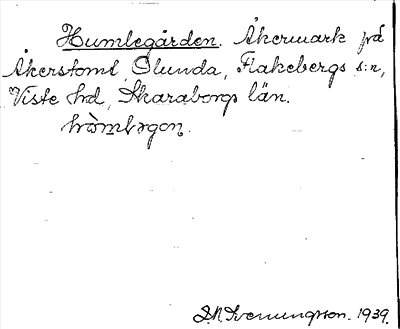 Humlegården. Åkermark på
Åkerstomt, Olunda, Flakebergs s:n,
Viste hd, Skaraborgs län.
Svenungsson. 1939.